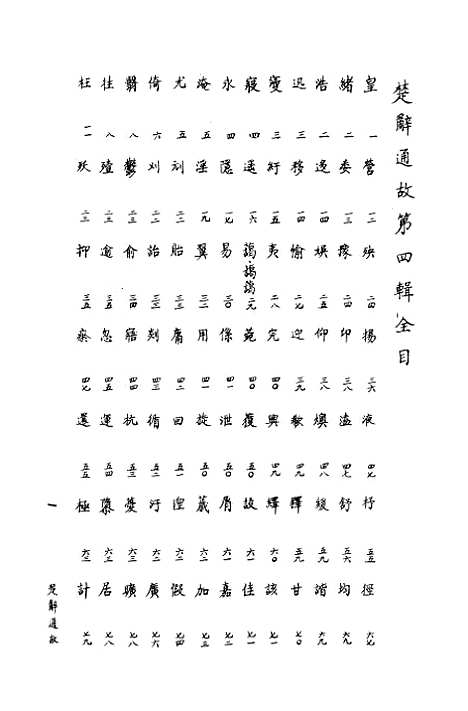 楚辭通故第四輯全目
皇 一 營 一二 殃 二四 揚 三六 液 四七 杼 五五 徑 六七
緒 二 委 一三 豫 二四 印 三八 溘 四七 舒 五六 均 六九
浩 二 逸 一四 娛 二五 仰 三八 燠 四八 緩 五九 諧 六九
迅 三 移 一四 愉 二七 迎 三九 五九 甘 七〇
三 紆 一五 夷 二八 完 四〇 興 四九 繹 六〇 該 七一
寢 四 遥 一六 二九 菀 四〇 復 五〇 故 六一 佳 七一
永 四 隱 一七 易 三〇 保 四一 泄 五〇 屑 六一 嘉 七二
淹 五 淫 一九 翼 三一 用 四一 旋 五〇 六二 加 七三
尤 五 二二 胎 三三 庸 四二 回 五一 六二 假 七四
倚 六 刈 二二 詒 三三 剡 四三 循 五二 汙 六三 廣 七六
翳 八 鬱 二三 俞 三四 寤 四四 抗 五三 憂 六三 曠 七八
往 八 二三 逾 三五 忽 四四 運 五四 六三 居 七八
枉 一一 二三 抑 三五 瘀 四七 還 五五 極 計 七九
一
楚辭通故